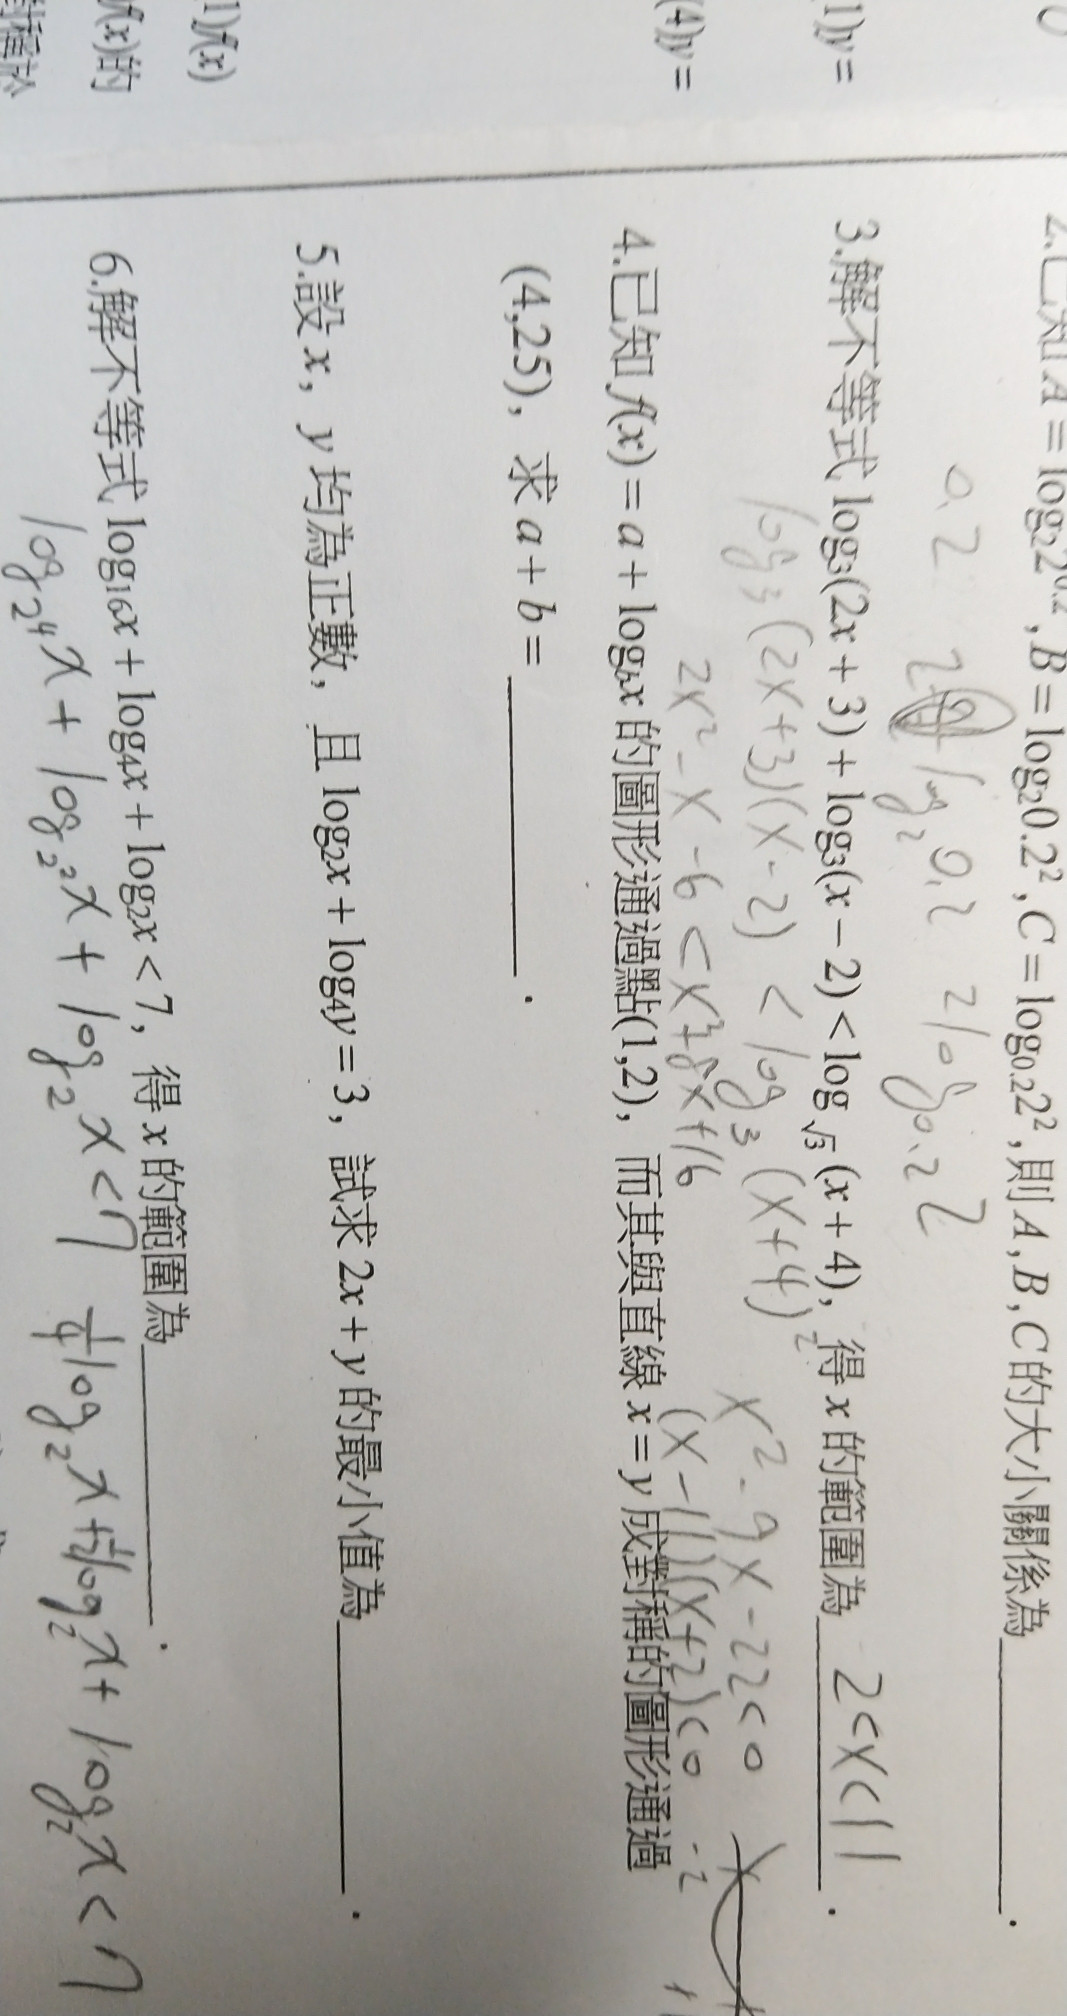 2.已知 A = log₂2^0.2 , B = log₂0.2² , C = log₀.₂2² , 則 A , B , C 的大小關係為
0.2 log₂ 0.2 2log₀.₂ 2
3.解不等式 log₃(2x + 3) + log₃(x − 2) < log_√3 (x + 4), 得 x 的範圍為 2<x<11 .
log₃(2x+3)(x-2) < log₃(x+4)² x²-9x-22<0
2x²-x-6<x²+8x+16 (x-11)(x+2)<0 -2
4.已知 f(x) = a + log_b x 的圖形通過點(1,2), 而其與直線 x = y 成對稱的圖形通過
(4,25), 求 a + b = .
5.設 x, y 均為正數, 且 log₂x + log₄y = 3, 試求 2x + y 的最小值為 .
6.解不等式 log₁₆x + log₄x + log₂x < 7, 得 x 的範圍為 .
log₂⁴x + log₂²x + log₂x<7 1/4log₂x+1/2log₂x+log₂x<7
1)y =
(4)y =
1)f(x)
f(x)的